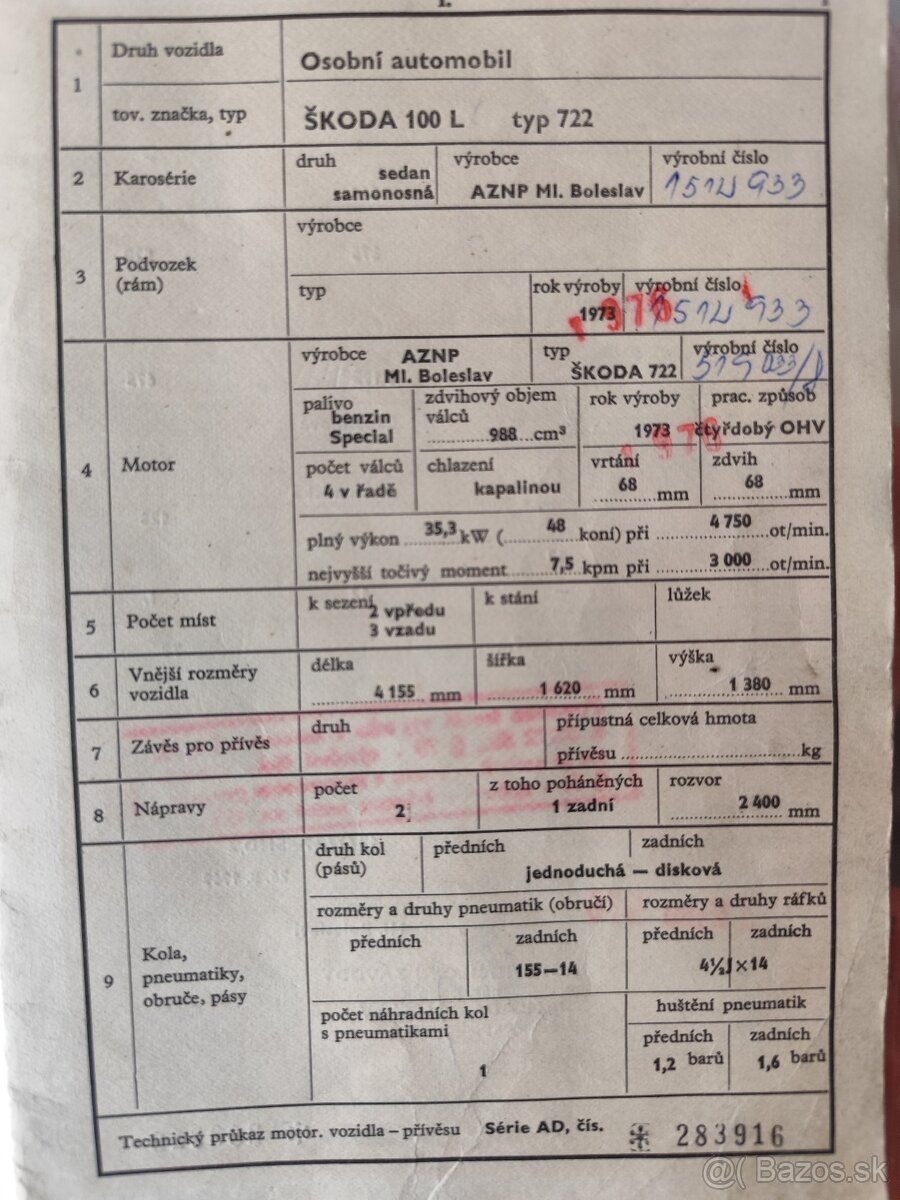 I.
1 Druh vozidla Osobní automobil
tov. značka, typ ŠKODA 100 L typ 722
2 Karosérie druh sedan samonosná výrobce AZNP Ml. Boleslav výrobní číslo 1514933
3 Podvozek (rám) výrobce
typ rok výroby 1973 výrobní číslo 1514933
4 Motor výrobce AZNP Ml. Boleslav typ ŠKODA 722 výrobní číslo
palivo benzin Special zdvihový objem válců 988 cm³ rok výroby 1973 prac. způsob čtyřdobý OHV
počet válců 4 v řadě chlazení kapalinou vrtání 68 mm zdvih 68 mm
plný výkon 35,3 kW (48 koní) při 4 750 ot/min.
nejvyšší točivý moment 7,5 kpm při 3 000 ot/min.
5 Počet míst k sezení 2 vpředu 3 vzadu k stání lůžek
6 Vnější rozměry vozidla délka 4 155 mm šířka 1 620 mm výška 1 380 mm
7 Závěs pro přívěs druh přípustná celková hmota
přívěsu kg
8 Nápravy počet 2 z toho poháněných 1 zadní rozvor 2 400 mm
9 Kola, pneumatiky, obruče, pásy druh kol (pásů) předních zadních
jednoduchá — disková
rozměry a druhy pneumatik (obručí) rozměry a druhy ráfků
předních zadních předních zadních
155—14 4½J×14
počet náhradních kol s pneumatikami 1 huštění pneumatik
předních zadních
1,2 barů 1,6 barů
Technický průkaz motor. vozidla – přívěsu Série AD, čís. 283916
@( Bazos.sk